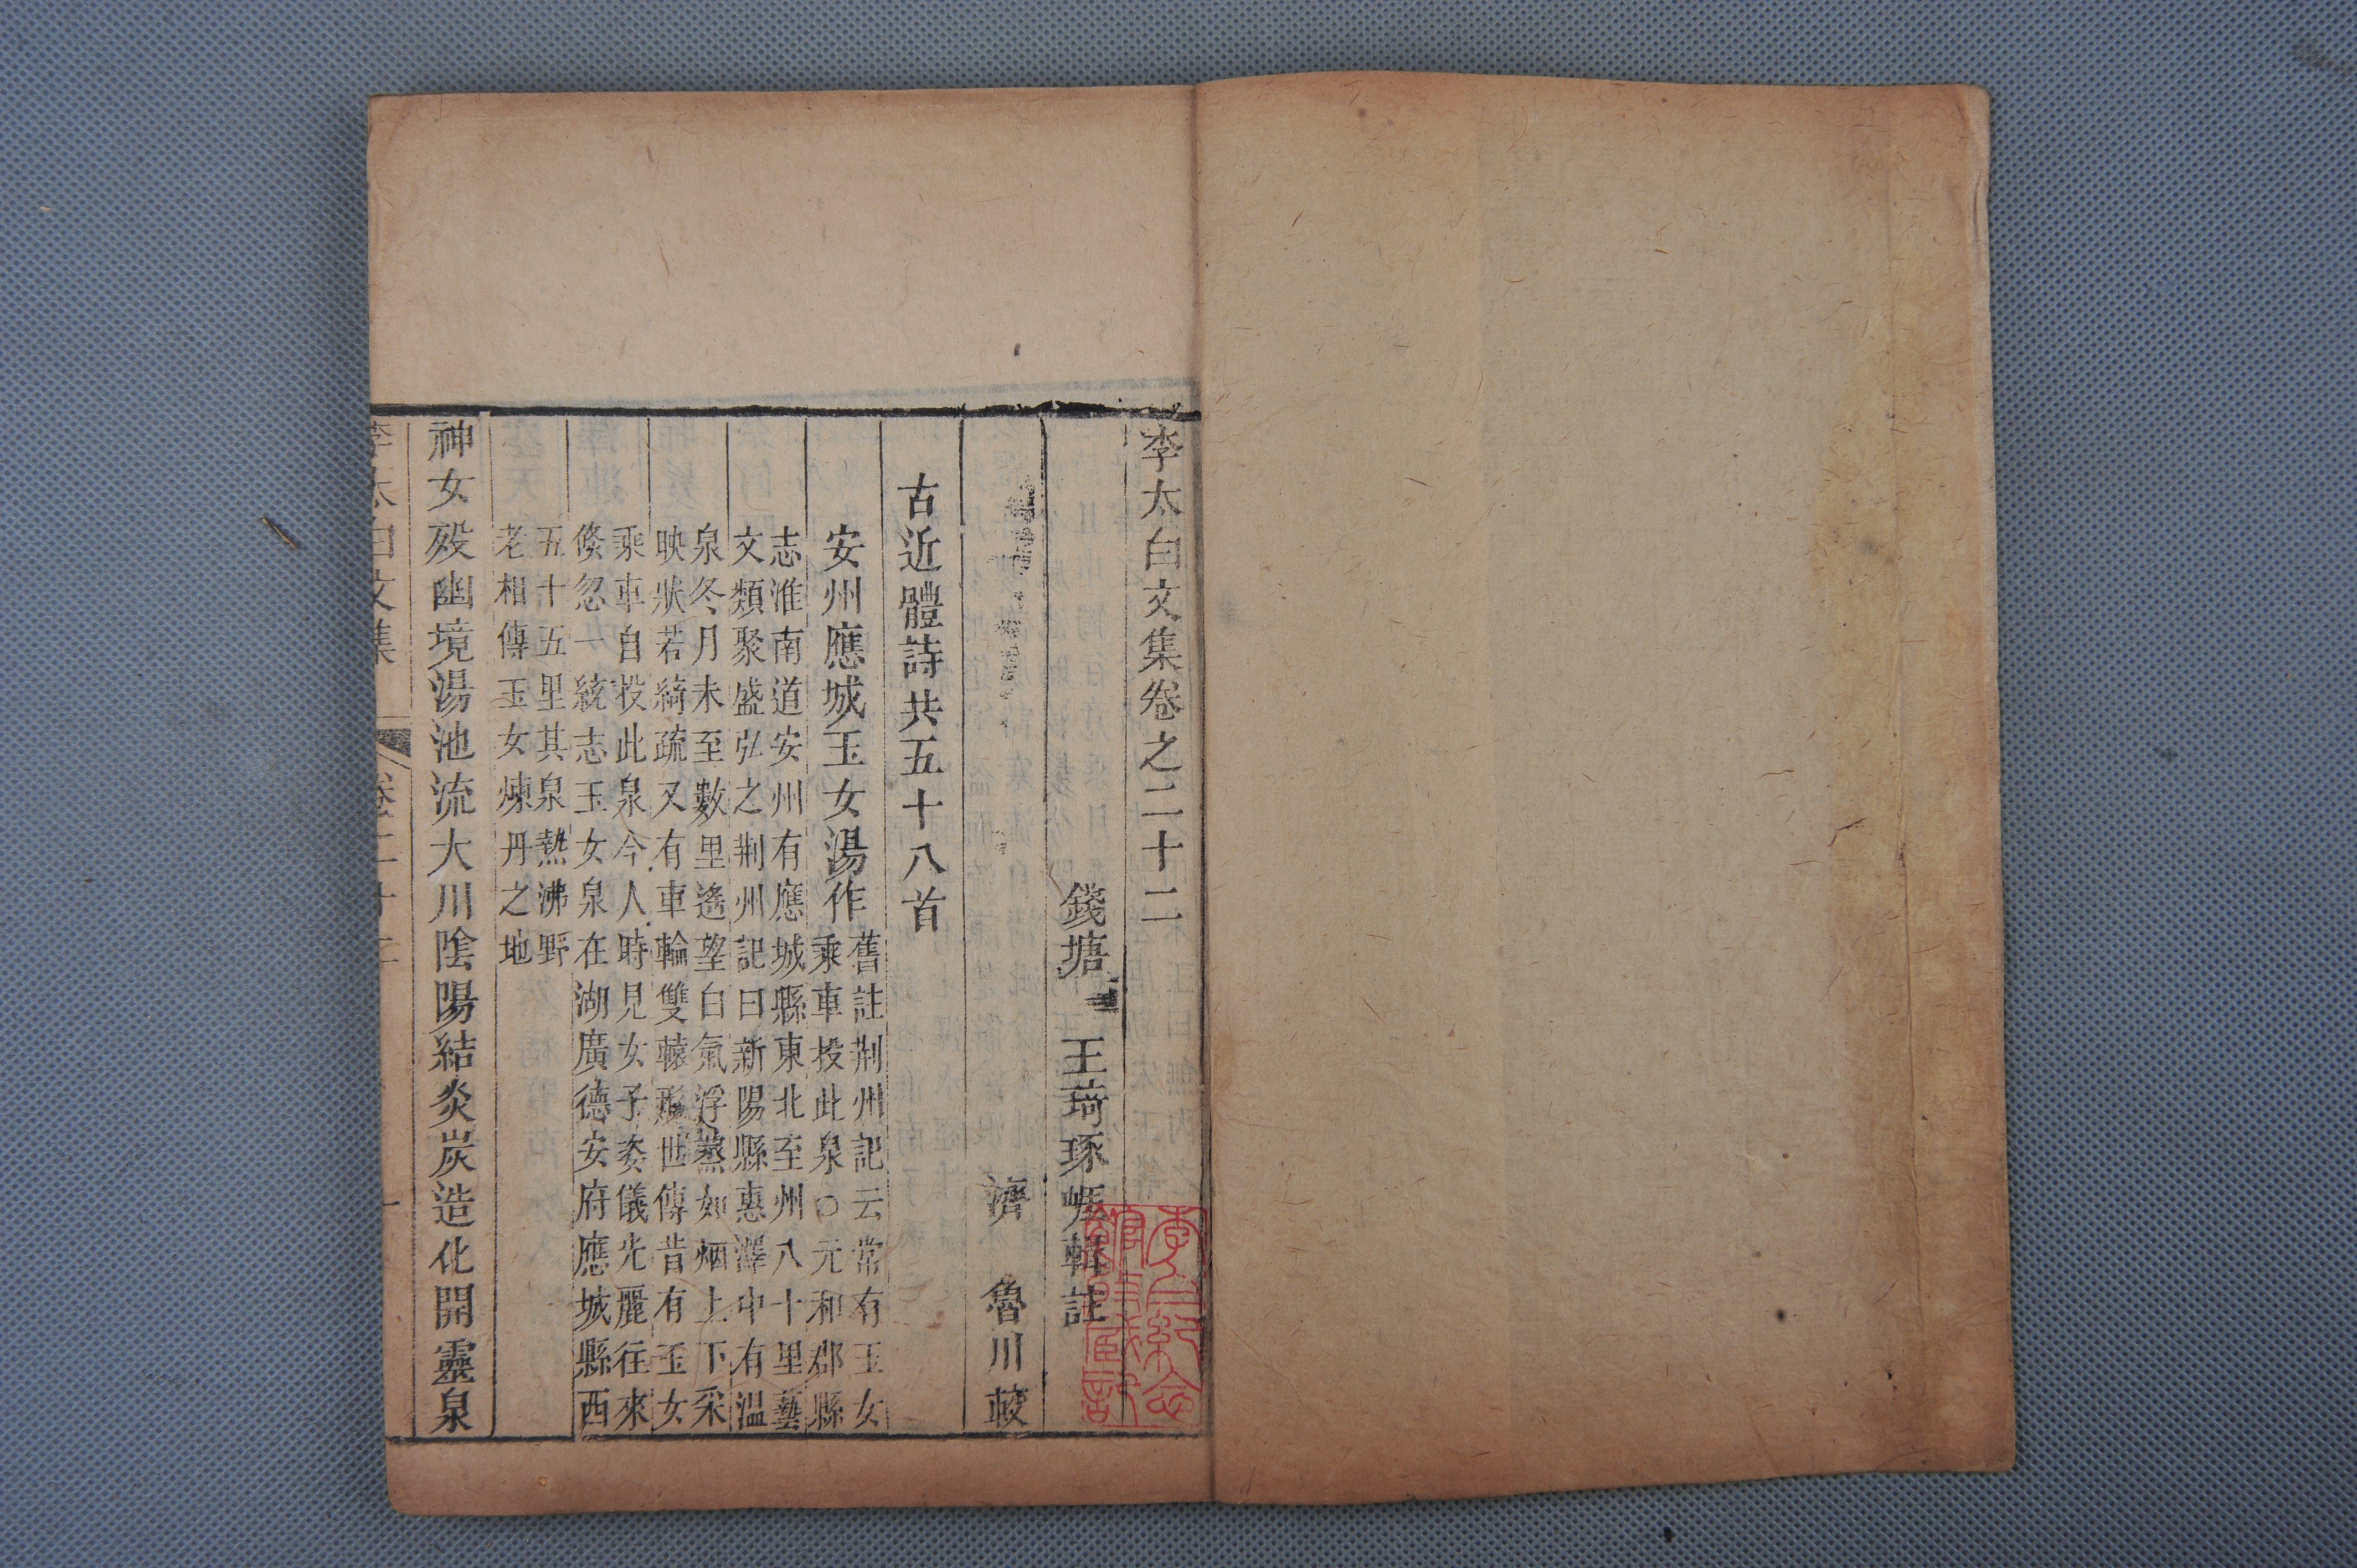 李太白文集卷之二十二
錢塘 王琦琢崖輯註
濟 魯川較
古近體詩共五十八首
安州應城玉女湯作
舊註荆州記云常有玉女
乘車投此泉○元和郡縣
志淮南道安州有應城縣東北至州八十里藝
文類聚盛弘之荆州記曰新陽縣惠澤中有温
泉冬月未至數里遙望白氣浮蒸如烟上下采
映狀若綺疏又有車輪雙轅形世傳昔有玉女
乘車自投此泉今人時見女子姿儀光麗往來
倐忽一統志玉女泉在湖廣德安府應城縣西
五十五里其泉熱沸野
老相傳玉女煉丹之地
神女殁幽境湯池流大川陰陽結炎炭造化開靈泉
李太白文集 卷二十二 一